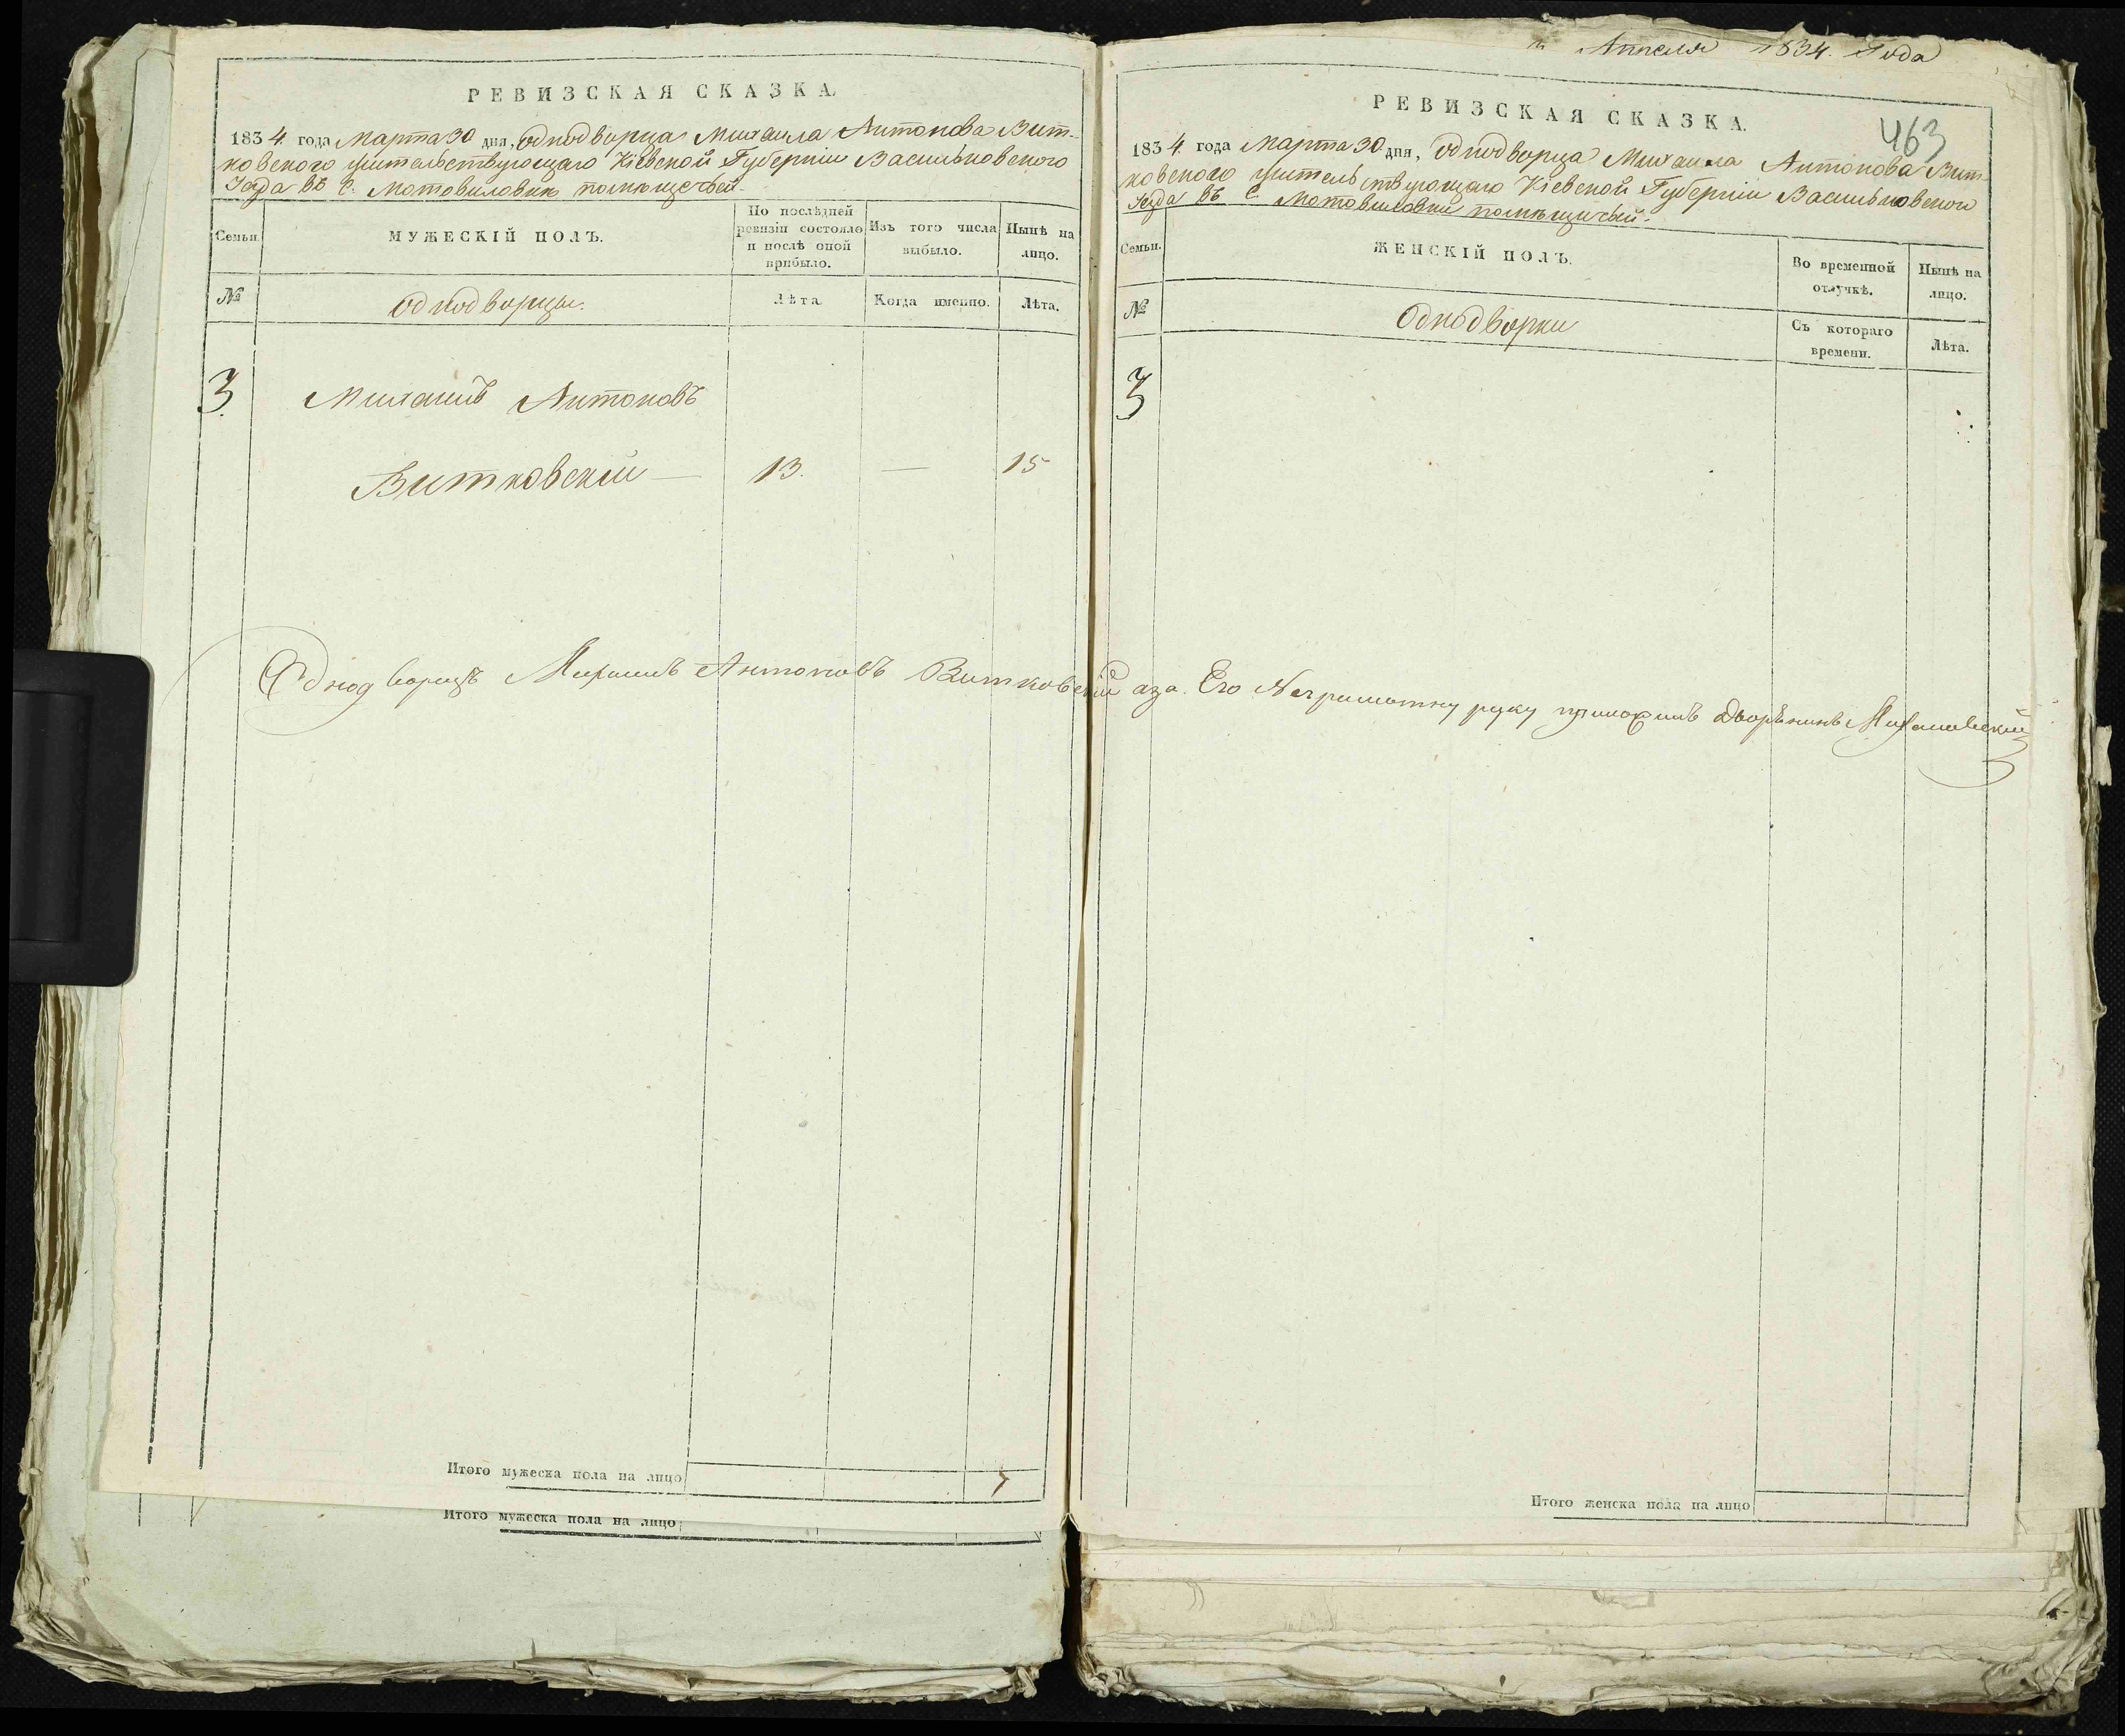 РЕВИЗСКАЯ СКАЗКА.
1834 года Марта 30 дня, Однодворца Михаила Антонова Вит-
ковского жительствующаго Кіевской Губерніи Васильковского
Уезда въ с. Мотовиловки помѣщичьей.
Семьи.
МУЖЕСКІЙ ПОЛЪ.
По послѣдней ревизіи состояло и послѣ оной прибыло.
Изъ того числа выбыло.
Нынѣ на лицо.
№
Однодворцы.
Лѣта.
Когда именно.
Лѣта.
3
Михаилъ Антоновъ
Витковскій — 13. — 15
Однодворецъ Михаилъ Антоновъ Витковскій аза Его Неграмотну руку приложилъ Дворѣнинъ
Итого мужеска пола на лицо
Итого мужеска пола на лицо
Апреля 1834. Года
463
РЕВИЗСКАЯ СКАЗКА.
1834 года Марта 30 дня, Однодворца Михаила Антонова Вит-
ковского жительствующаго Кіевской Губерніи Васильковского
Уезда въ с. Мотовиловки помѣщичьей.
Семьи.
ЖЕНСКІЙ ПОЛЪ.
Во временной отлучкѣ.
Нынѣ на лицо.
№
Однодворки
Съ котораго времени.
Лѣта.
3
Итого женска пола на лицо